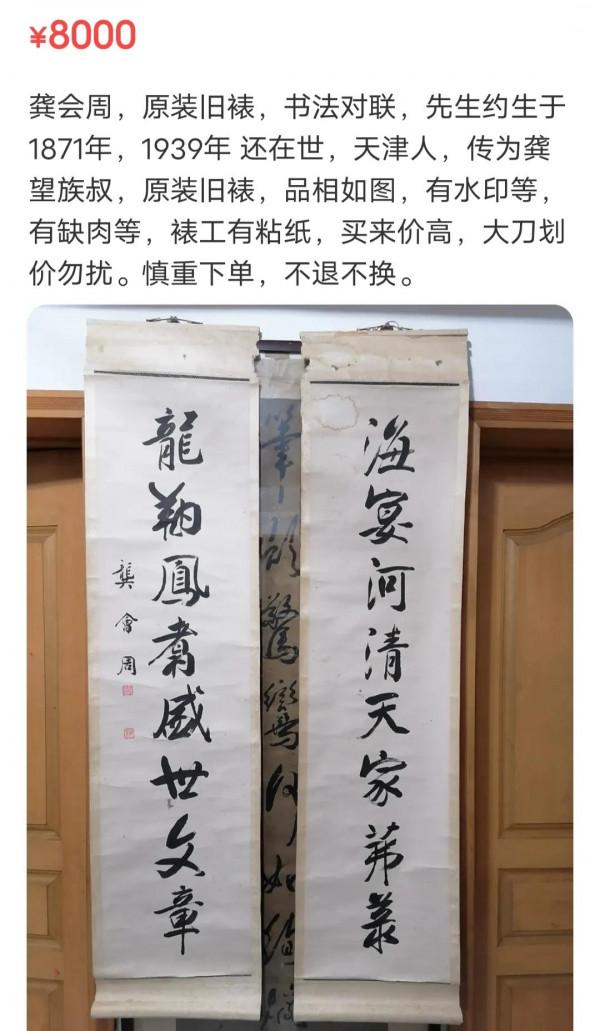 ¥8000
龚会周，原装旧裱，书法对联，先生约生于
1871年，1939年 还在世，天津人，传为龚
望族叔，原装旧裱，品相如图，有水印等，
有缺肉等，裱工有粘纸，买来价高，大刀划
价勿扰。慎重下单，不退不换。
海宴河清天家茀菉
龍翔鳳翥盛世文章
龔會周